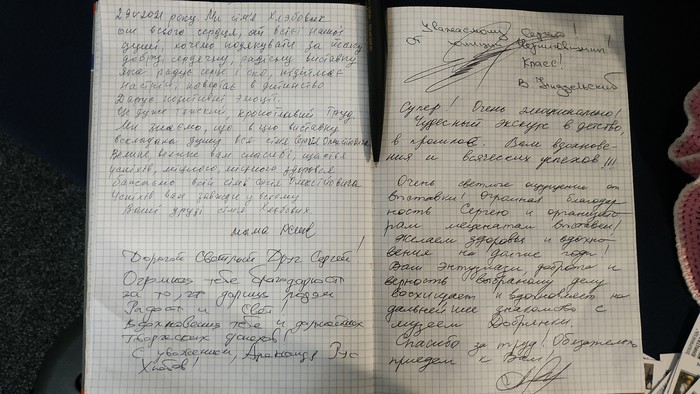 29.V.2021 року. Ми сім'я Хлєбовик
от всього серця, от всієї нашої
душиї, хочемо подякувати за
добру, сердечну, радісну виставку
Яка радує серце і око, підіймає
настрій, повертає в дитинство
Дарує позитивні емоції.
Це дуже тяжкий, кропітливий труд.
Ми знаємо, що в цю виставку
вкладена душу вся сім'я
Велике, велике вам спасибі, щастя
успіхів, міцного, міцного здоровья
всій сім'ї Сергія Олексійовича
Успіхів вам завжди у всьому
Ваші друзі сімея
мама
Дорогой Светлый Друг Сергей!
Огромная тебе благодарность
за то, что даришь людям
Радость и Свет!
Вдохновения тебе и дальнейших
Творческих успехов!
С уважением, Александр Рус
Уважаемому Сергею!
От
Класс!
В.
Супер! Очень эмоционально!
Чудесный экскурс в детство,
в прошлое. Вам вдохнове-
ния и всяческих успехов!!!
Очень светлые ощущения от
выставки! Огромная благодар
ность Сергею и организато
рам меценатам выставки!
Желаем здоровья и вдохно-
вения на долгие года!
Ваш энтузиазм, доброта и
верность выбраному делу
Восхищает и вдохновляет на
дальнейшее знакомство с
музеем Добрянки.
Спасибо за труд! Обязательно
приедем к Вам!